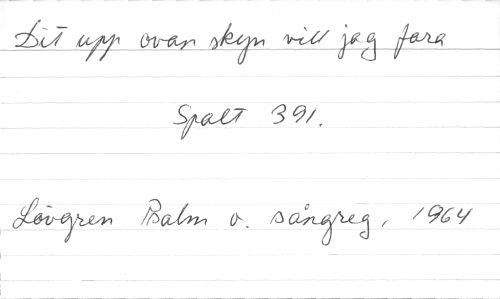 Dit upp ovan skyn vill jag fara
Spalt 391.
Lövgren Psalm o. sångreg, 1964